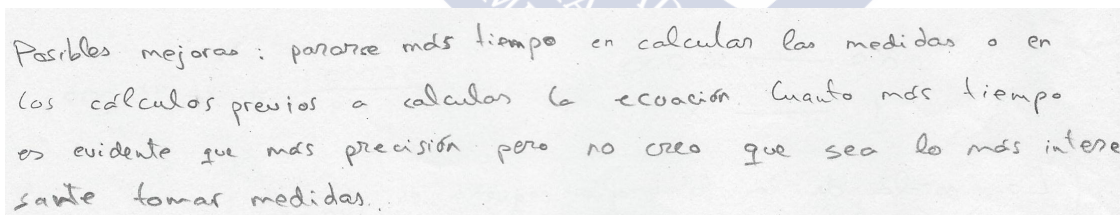 Posibles mejoras: pararse más tiempo en calcular las medidas o en
los cálculos previos a calcular la ecuación. Cuanto más tiempo
es evidente que más precisión pero no creo que sea lo más intere
sante tomar medidas.